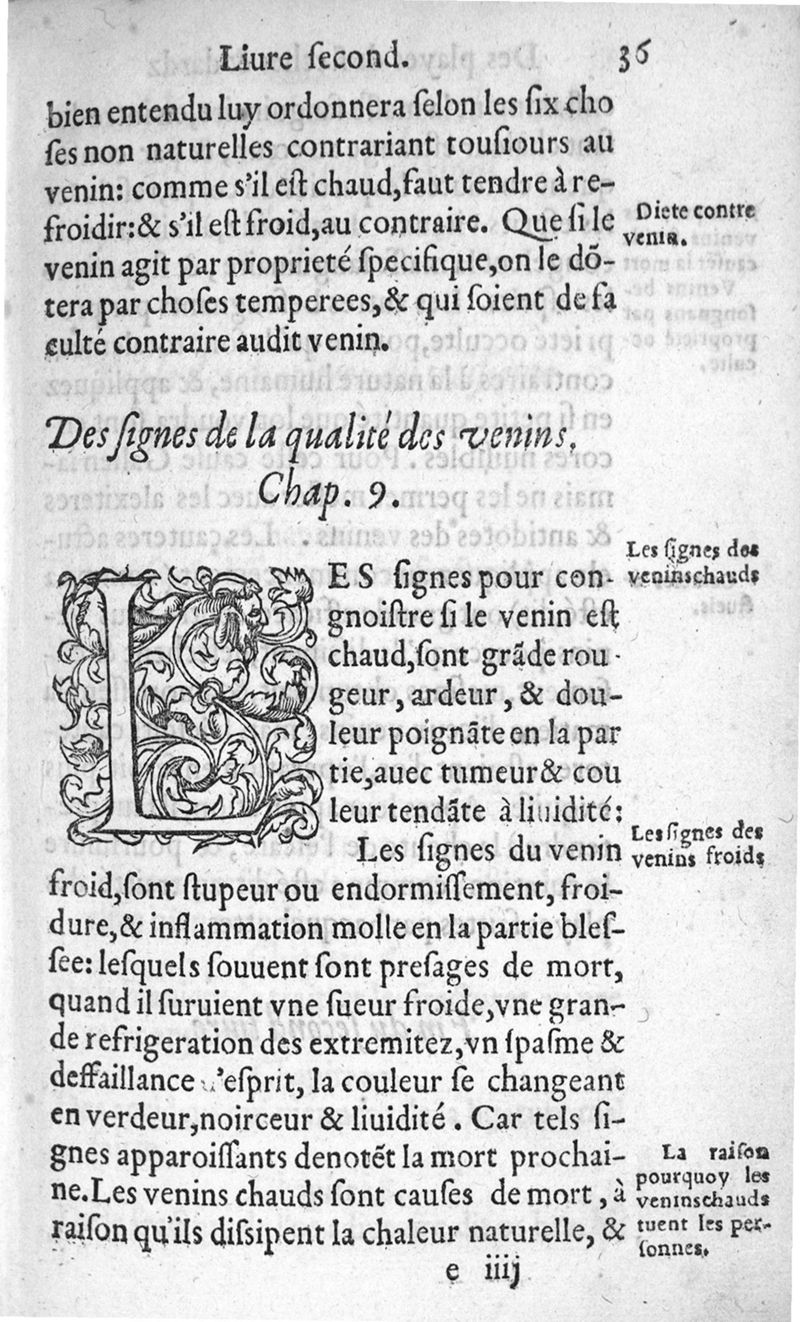 Liure ſecond. 36
bien entendu luy ordonnera ſelon les ſix cho
ſes non naturelles contrariant touſiours au
venin: comme s'il eſt chaud, faut tendre à re-
froidir: & s'il eſt froid, au contraire. Que ſi le
Diete contre
venin.
venin agit par proprieté ſpecifique, on le dõ-
tera par choſes temperees, & qui ſoient de fa
culté contraire audit venin.
Des ſignes de la qualité des venins.
Chap. 9.
Les ſignes des
venins chauds
LES ſignes pour con-
gnoiſtre ſi le venin eſt
chaud, ſont grãde rou-
geur, ardeur, & dou-
leur poignãte en la par
tie, auec tumeur & cou
leur tendãte à liuidité:
Les ſignes des
venins froids
Les ſignes du venin
froid, ſont ſtupeur ou endormiſſement, froi-
dure, & inflammation molle en la partie bleſ-
ſee: leſquels ſouuent ſont preſages de mort,
quand il ſuruient vne ſueur froide, vne gran-
de refrigeration des extremitez, vn ſpaſme &
deffaillance d'eſprit, la couleur ſe changeant
en verdeur, noirceur & liuidité. Car tels ſi-
gnes apparoiſſants denotẽt la mort prochai-
ne. Les venins chauds ſont cauſes de mort, à
raiſon qu'ils diſsipent la chaleur naturelle, &
La raiſon
pourquoy les
venins chauds
tuent les per-
ſonnes.
e iiij